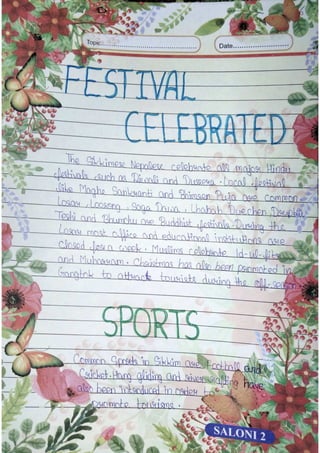 Topic
Date
FESTIVAL
CELEBRATED
The Sikkimese Nepalese celebrate all major Hindu
festivals such as Diwali and Dussera. Local festival
like Maghe Sankranti and Bhimsen Puja are common
Losar, Loosong, Saga Dawa, Lhabab Duechen, Drupka
Teshi and Bhumchu are Buddhist festivals. During the
Losar most office and educational institutions are
closed for a week. Muslims celebrate Id-ul-fitr
and Muharram. Christmas has also been promoted in
Gangtok to attract tourists during the off season
SPORTS
Common Sports in Sikkim are Football and
Cricket. Hang gliding and river rafting have
also been introduced in order to
promote tourism.
SALONI 2